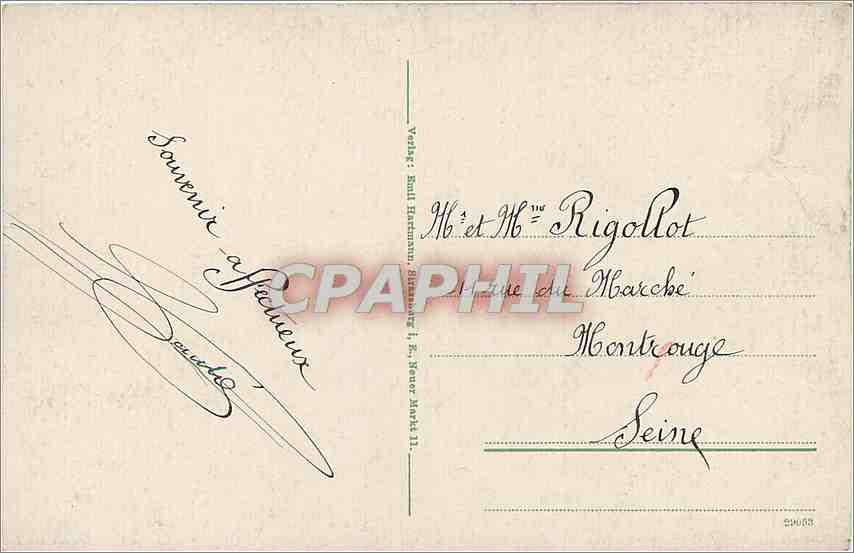 Souvenir affectueux
Verlag: Emil Hartmann, Strassburg i, E., Neuer Markt 11.
Mr et Mme Rigollot
11 rue du Marché
Montrouge
Seine
CPAPHIL
29053